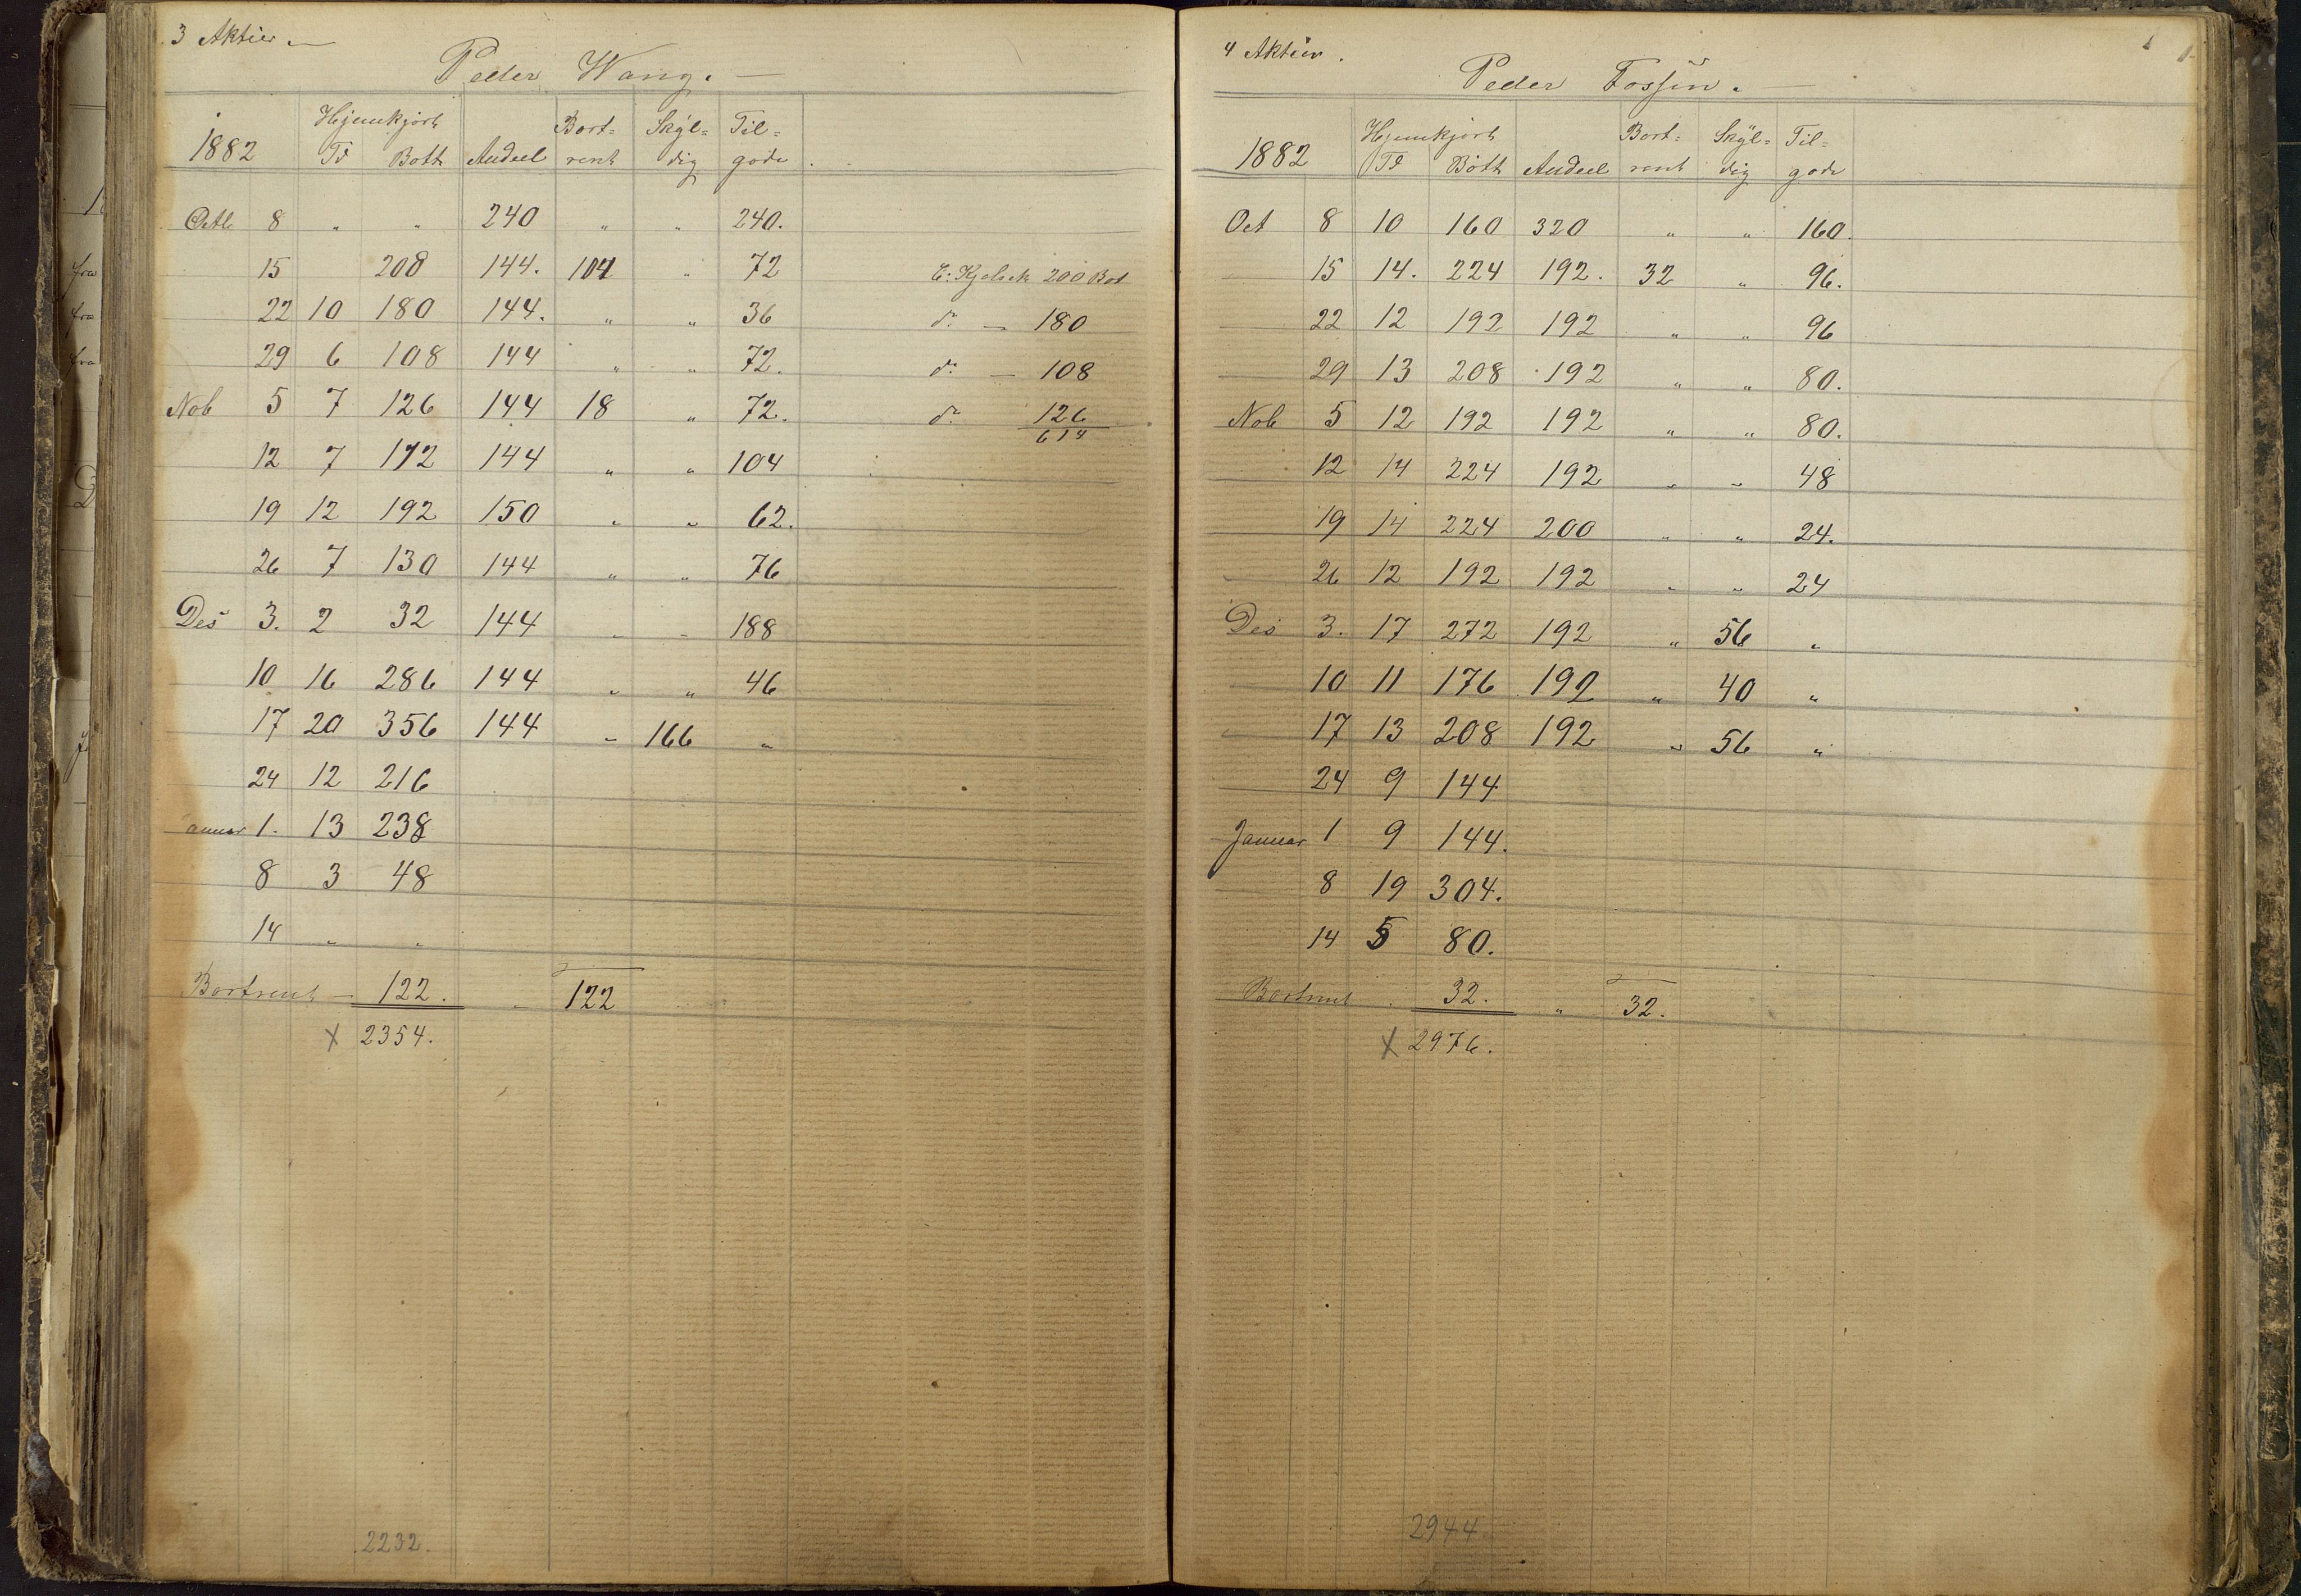 3 Aktier. —
Peder Wang. —
1882 Hjemkjørt Andeel Bort= rent Skyl= dig Til= gode
Td Bøtt
Octb 8 " " 240 " " 240.
15 208 144. 104 " 72 E: Kjelsek 200 Bot
22 10 180 144. " " 36 do — 180
29 6 108 144 " " 72. do — 108
Nob 5 7 126 144 18 " 72. do 126
614
12 7 112 144 " " 104
19 12 192 150 " " 62.
26 7 130 144 " " 76
Des 3. 2 32 144 " " 188
10 16 286 144 " " 46
17 20 356 144 " 166 "
24 12 216
anuar 1. 13 238
8 3 48
14 " "
Bortrent — 122. " 122
x 2354.
2232.
4 Aktier.
Peder Fossen. —
1882 Hjemkjørt Andeel Bort= rent Skyl= dig Til= gode
Td Bøtt
Oct 8 10 160 320 " " 160.
15 14. 224 192. 32 " 96.
22 12 192 192 " " 96
29 13 208 192 " " 80.
Nob 5 12 192 192 " " 80.
12 14 224 192 " " 48
19 14 224 200 " " 24.
26 12 192 192 " " 24
Des 3. 17 272 192 " 56 "
10 11 176 192 " 40 "
17 13 208 192 " 56 "
24 9 144
Januar 1 9 144.
8 19 304.
14 5 80.
Bortrent . 32. " 32.
x 2976.
2944